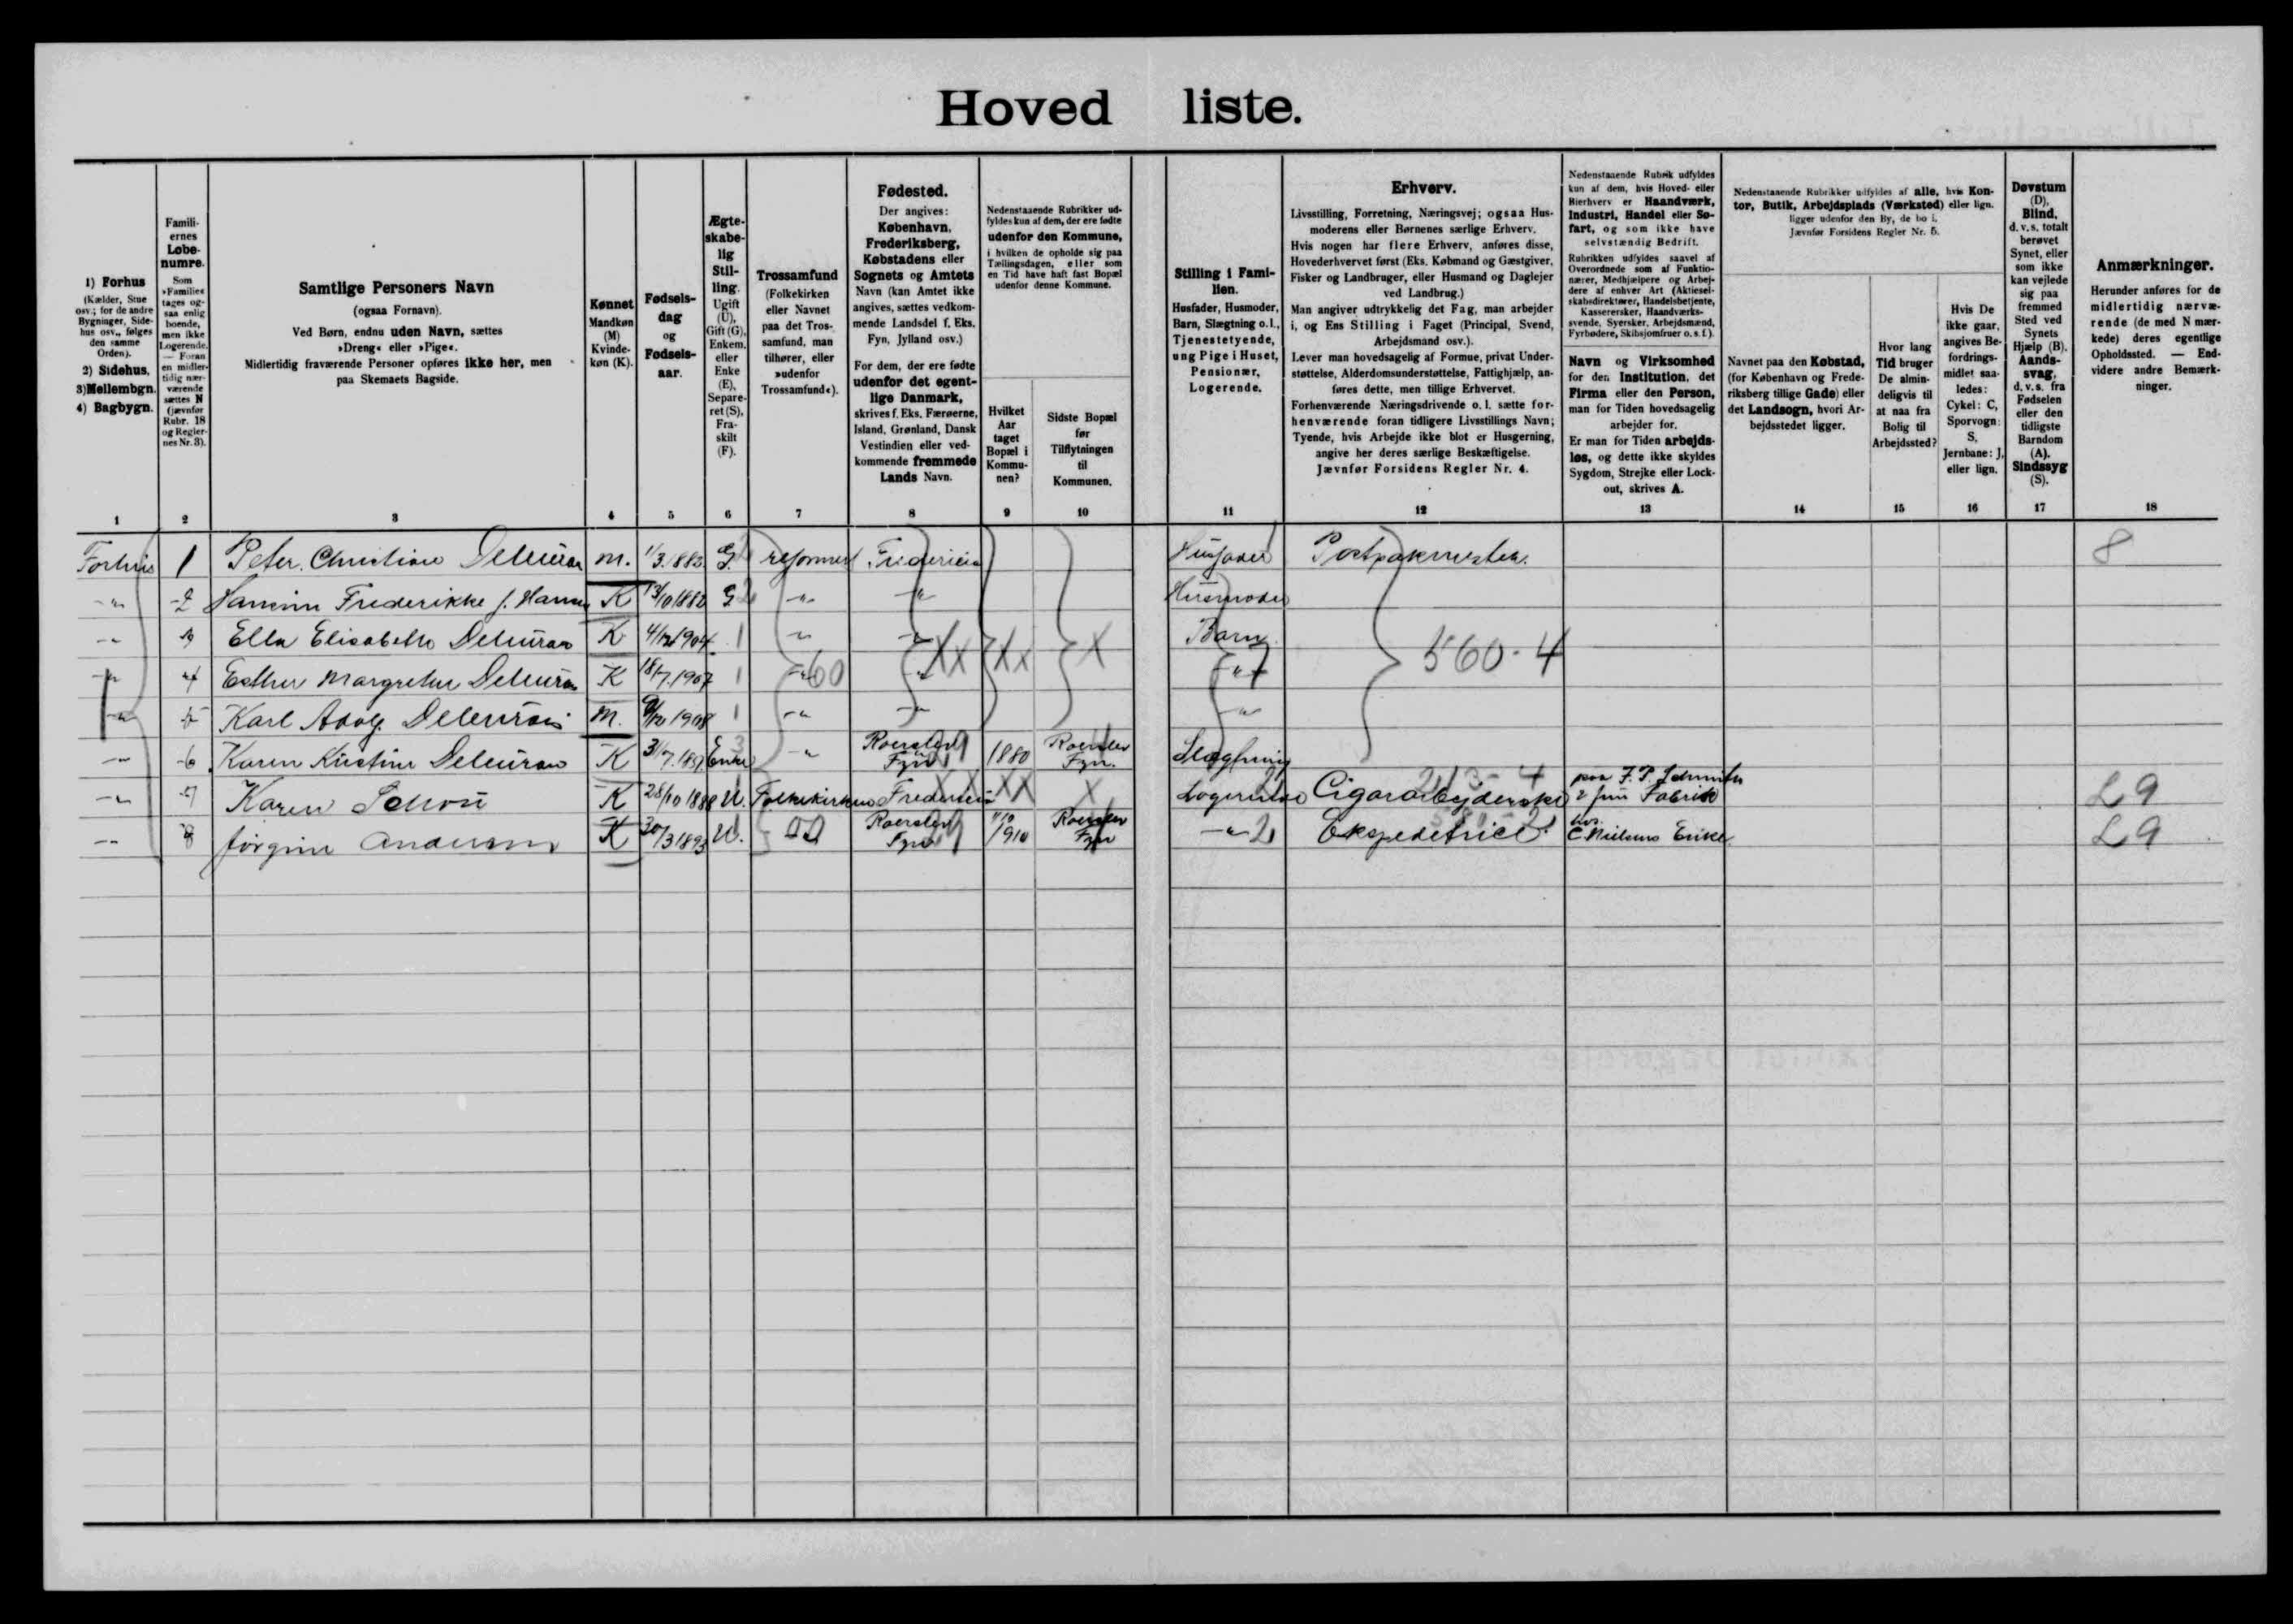 Hoved liste.
1) Forhus
(Kælder, Stue
osv.; for de andre
Bygninger, Side-
hus osv., følges
den samme
Orden).
2) Sidehus.
3) Mellembgn.
4) Bagbygn.
Famili-
ernes
Løbe-
numre.
Som
»Familie«
tages og-
saa enlig
boende,
men ikke
Logerende.
— Foran
en midler-
tidig nær-
værende
sættes N
(jævnfør
Rubr. 18
og Regler-
nes Nr. 3).
Samtlige Personers Navn
(ogsaa Fornavn).
Ved Børn, endnu uden Navn, sættes
»Dreng« eller »Pige«.
Midlertidig fraværende Personer opføres ikke her, men
paa Skemaets Bagside.
Kønnet
Mandkøn
(M)
Kvinde-
køn (K).
Fødsels-
dag
og
Fødsels-
aar.
Ægte-
skabe-
lig
Stil-
ling.
Ugift
(U),
Gift (G),
Enkem.
eller
Enke
(E),
Separe-
ret (S),
Fra-
skilt
(F).
Trossamfund
(Folkekirken
eller Navnet
paa det Tros-
samfund, man
tilhører, eller
»udenfor
Trossamfund«).
Fødested.
Der angives:
København,
Frederiksberg,
Købstadens eller
Sognets og Amtets
Navn (kan Amtet ikke
angives, sættes vedkom-
mende Landsdel f. Eks.
Fyn, Jylland osv.)
For dem, der ere fødte
udenfor det egent-
lige Danmark,
skrives f. Eks. Færøerne,
Island, Grønland, Dansk
Vestindien eller ved-
kommende fremmede
Lands Navn.
Nedenstaaende Rubrikker ud-
fyldes kun af dem, der ere fødte
udenfor den Kommune,
i hvilken de opholde sig paa
Tællingsdagen, eller som
en Tid have haft fast Bopæl
udenfor denne Kommune.
Hvilket
Aar
taget
Bopæl i
Kommu-
nen?
Sidste Bopæl
før
Tilflytningen
til
Kommunen.
Stilling i Fami-
lien.
Husfader, Husmoder,
Barn, Slægtning o.l.,
Tjenestetyende,
ung Pige i Huset,
Pensionær,
Logerende.
Erhverv.
Livsstilling, Forretning, Næringsvej; ogsaa Hus-
moderens eller Børnenes særlige Erhverv.
Hvis nogen har flere Erhverv, anføres disse,
Hovederhvervet først (Eks. Købmand og Gæstgiver,
Fisker og Landbruger, eller Husmand og Daglejer
ved Landbrug.)
Man angiver udtrykkelig det Fag, man arbejder
i, og Ens Stilling i Faget (Principal, Svend,
Arbejdsmand osv.).
Lever man hovedsagelig af Formue, privat Under-
støttelse, Alderdomsunderstøttelse, Fattighjælp, an-
føres dette, men tillige Erhvervet.
Forhenværende Næringsdrivende o. l. sætte for-
henværende foran tidligere Livsstillings Navn;
Tyende, hvis Arbejde ikke blot er Husgerning,
angive her deres særlige Beskæftigelse.
Jævnfør Forsidens Regler Nr. 4.
Nedenstaaende Rubrik udfyldes
kun af dem, hvis Hoved- eller
Bierhverv er Haandværk,
Industri, Handel eller Sø-
fart, og som ikke have
selvstændig Bedrift.
Rubrikken udfyldes saavel af
Overordnede som af Funktio-
nærer, Medhjælpere og Arbej-
dere af enhver Art (Aktiesel-
skabsdirektører, Handelsbetjente,
Kasserersker, Haandværks-
svende, Syersker, Arbejdsmænd,
Fyrbødere, Skibsjomfruer o. s. f.).
Navn og Virksomhed
for den Institution, det
Firma eller den Person,
man for Tiden hovedsagelig
arbejder for.
Er man for Tiden arbejds-
løs, og dette ikke skyldes
Sygdom, Strejke eller Lock-
out, skrives A.
Nedenstaaende Rubrikker udfyldes af alle, hvis Kon-
tor, Butik, Arbejdsplads (Værksted) eller lign.
ligger udenfor den By, de bo i.
Jævnfør Forsidens Regler Nr. 5.
Navnet paa den Købstad,
(for København og Frede-
riksberg tillige Gade) eller
det Landsogn, hvori Ar-
bejdsstedet ligger.
Hvor lang
Tid bruger
De almin-
deligvis til
at naa fra
Bolig til
Arbejdssted?
Hvis De
ikke gaar,
angives Be-
fordrings-
midlet saa-
ledes:
Cykel: C,
Sporvogn:
S,
Jernbane: J,
eller lign.
Døvstum
(D),
Blind,
d. v. s. totalt
berøvet
Synet, eller
som ikke
kan vejlede
sig paa
fremmed
Sted ved
Synets
Hjælp (B).
Aands-
svag,
d. v. s. fra
Fødselen
eller den
tidligste
Barndom
(A).
Sindssyg
(S).
Anmærkninger.
Herunder anføres for de
midlertidig nærvæ-
rende (de med N mær-
kede) deres egentlige
Opholdssted. — End-
videre andre Bemærk-
ninger.
1 2 3 4 5 6 7 8 9 10 11 12 13 14 15 16 17 18
Forhus 1 Peter Christian Deleuran M. 1/3 1882 G. 2 reformert Fredericia Husfader 1 Postpakmester. 8
-"- 2 Frederikke f. Hansen K 13/10 1882 G 2 -"- -"- Husmoder
-"- 3 Ella Elisabeth Deleuran K 4/12 1904 1 -"- -"- XX XX X Barn 560-4
-"- 4 Esther Margrethe Deleuran K 18/7 1907 1 -"- 60 -"- -"- 7
-"- 5 Karl Adolf Deleuran M. 1908 1 -"- -"- -"-
-"- 6 Karen Kirstine Deleuran K Enke 3 -"- Roerslev Fyn 1880 Roerslev Fyn. Slægtning
-"- 7 Karen Schou K 28/10 1888 U. Folkekirken Fredericia XX XX X Logerende 2 Cigararbejderske 213-4 paa J. P. Schmidt jun Fabrik L 9
-"- 8 Jørgine Andersen K 30/3 1893 U. 00 Roerslev Fyn 1/10 1910 Roerslev Fyn -"- 2 Ekspeditrice. hos C. Nielsens Enke L 9